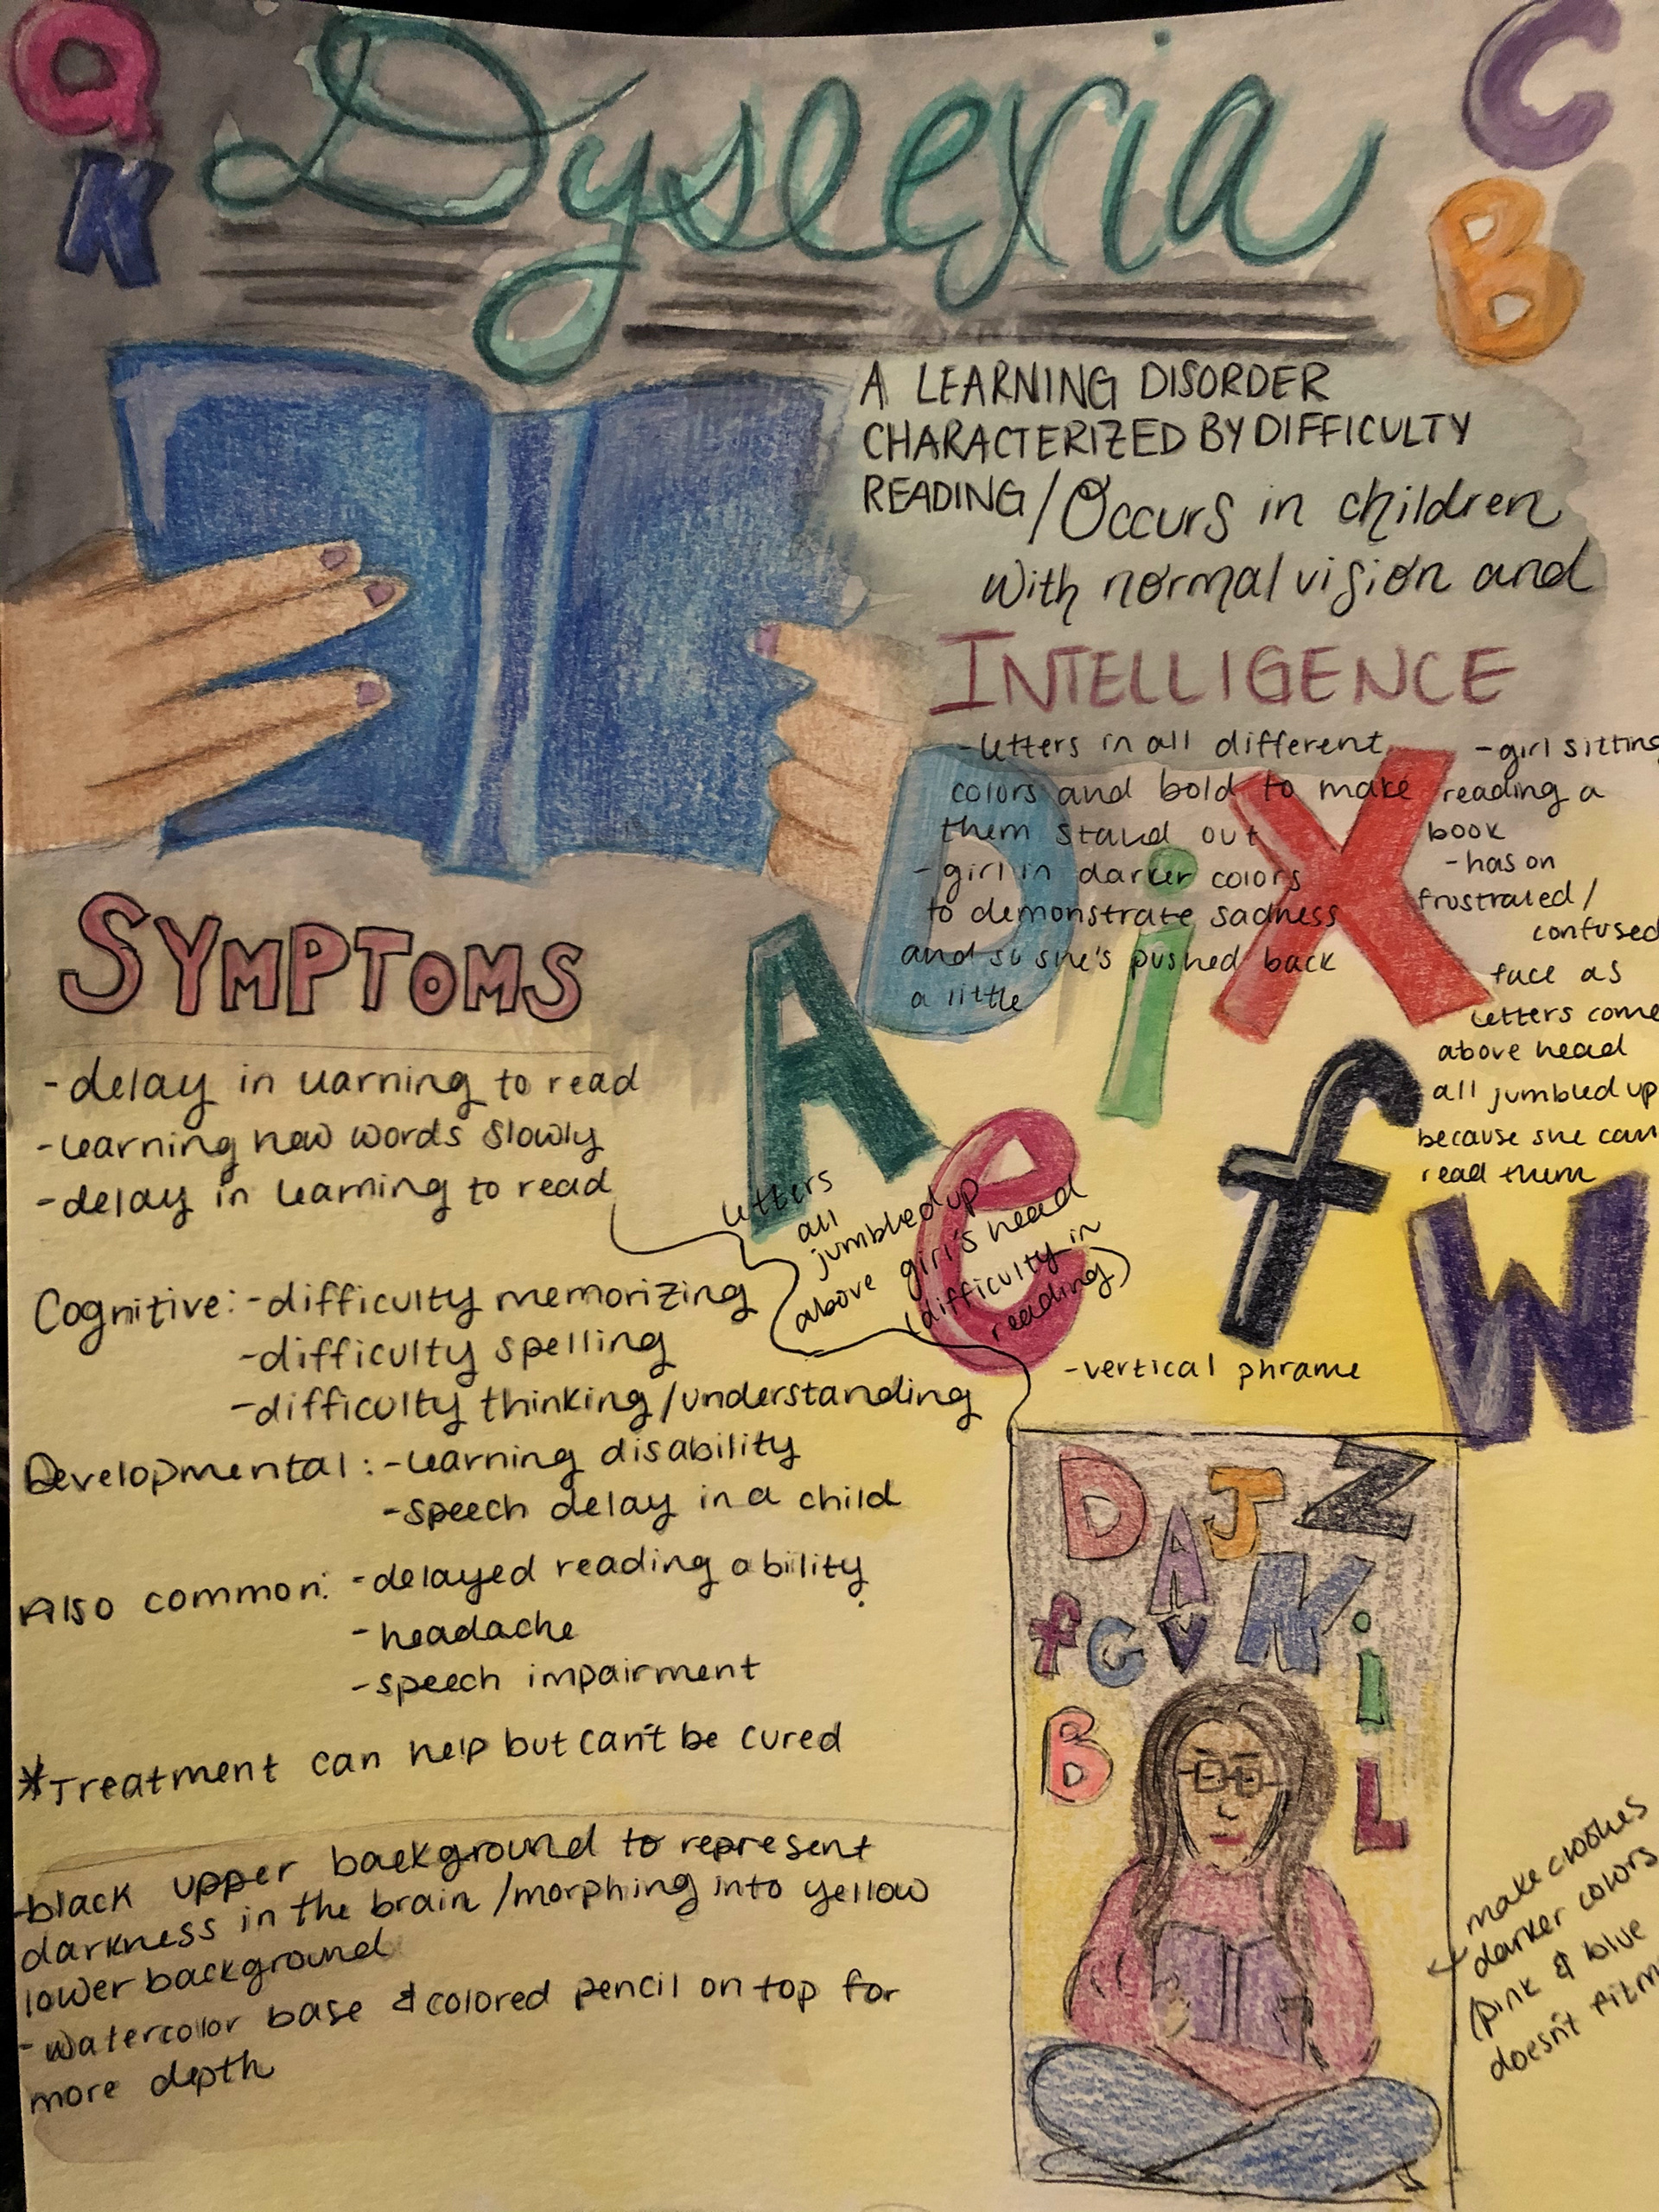 Q
C
K
B
Dyslexia
A LEARNING DISORDER
CHARACTERIZED BY DIFFICULTY
READING/Occurs in children
with normal vision and
INTELLIGENCE
-letters in all different
colors and bold to make
them stand out
-girl in darker colors
to demonstrate sadness
and so she's pushed back
a little
-girl sitting
reading a
book
-has on
frustrated/
confused
face as
letters come
above head
all jumbled up
because she can
read them
D
i
X
A
e
f
W
SYMPTOMS
-delay in learning to read
-learning new words slowly
-delay in learning to read
letters
all
jumbled up
above girl's head
(difficulty in
reading)
Cognitive: -difficulty memorizing
-difficulty spelling
-difficulty thinking/understanding
Developmental: -learning disability
-speech delay in a child
Also common: -delayed reading ability.
-headache
-speech impairment
*Treatment can help but can't be cured
-black upper background to represent
darkness in the brain/morphing into yellow
lower background
-watercolor base & colored pencil on top for
more depth
-vertical phrame
D
A
J
Z
f
G
V
K
i
B
L
make clothes
darker colors
(pink & blue
doesn't